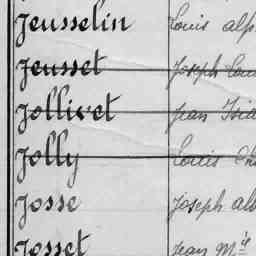 Jeusselin Louis Alp
Jeusset Joseph Loui
Jollivet Jean Isid
Jolly Louis
Josse Joseph Alb
Josset Jean Mie